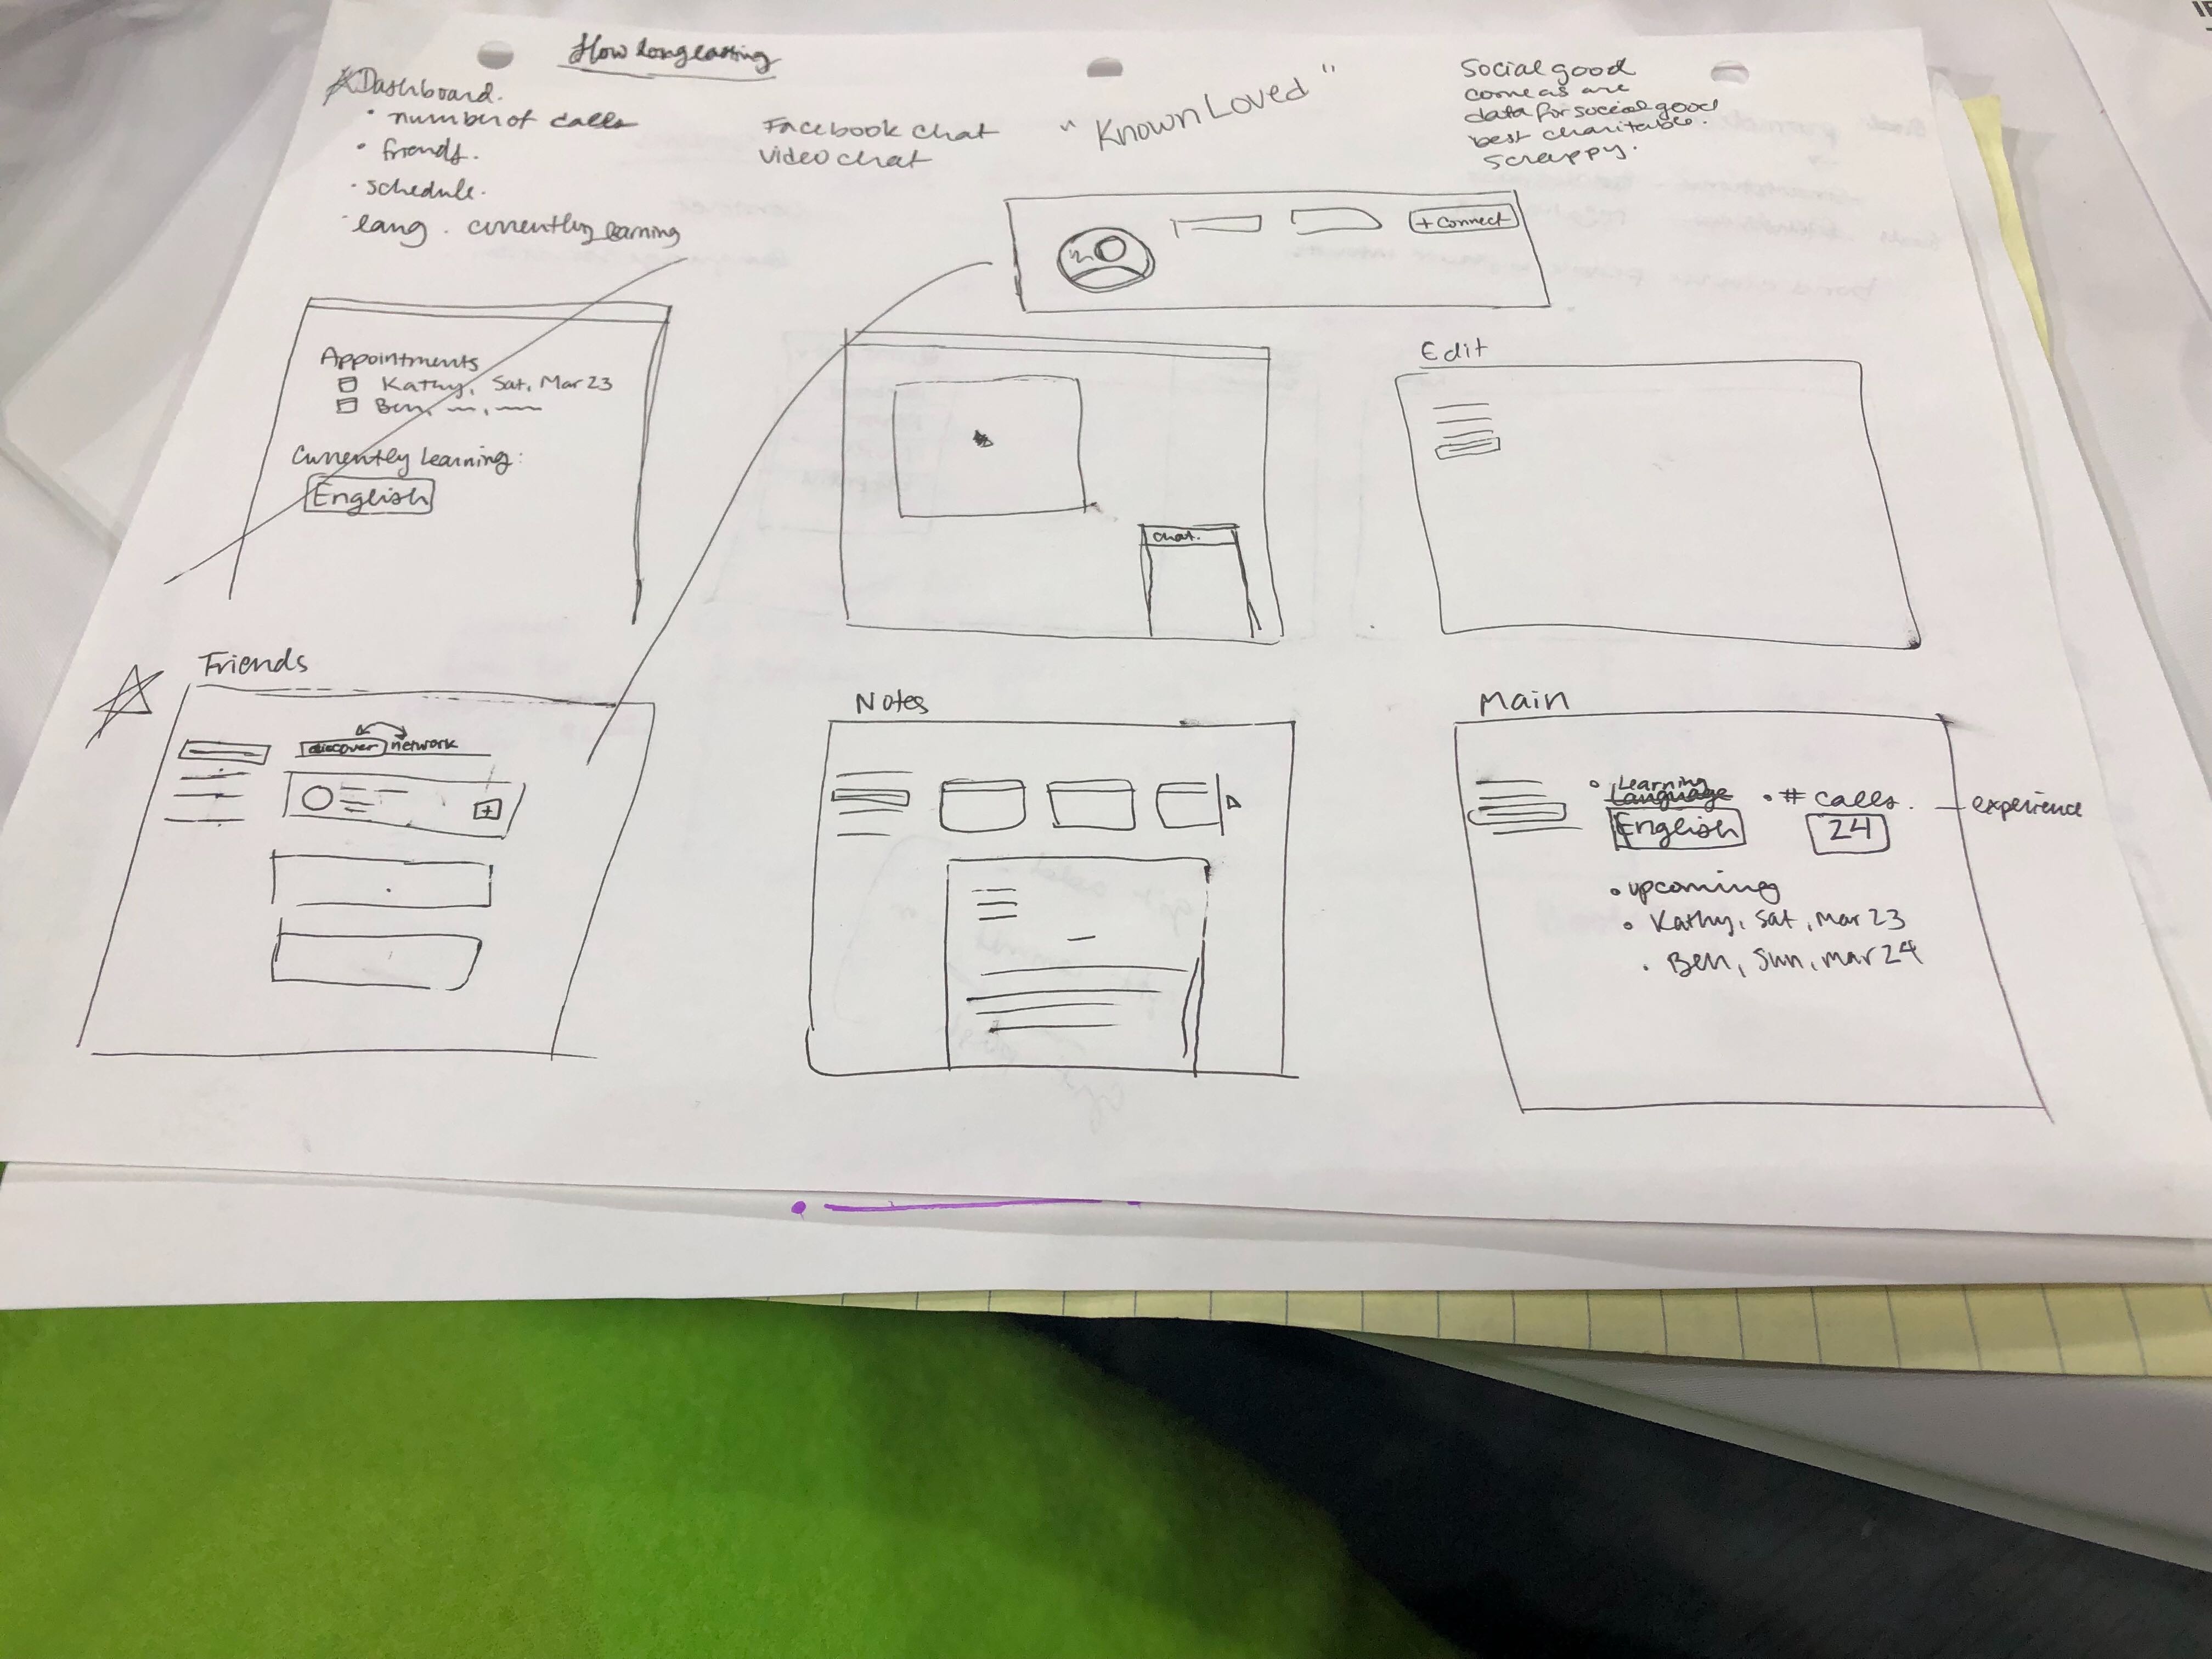 How longlasting
Dashboard.
• number of calls
• friends.
• schedule.
• lang. currently learning
Facebook chat
video chat
"Known Loved"
Social good
comeas are
data for social good
best charitable.
scrappy.
+ Connect
Appointments
Kathy, Sat, Mar 23
Ben,
Currently Learning:
English
chat.
Edit
Friends
discover network
+
Notes
Main
• Learning
Language
English
• # calls. — experience
24
• upcoming
• Kathy, Sat, Mar 23
• Ben, Sun, Mar 24